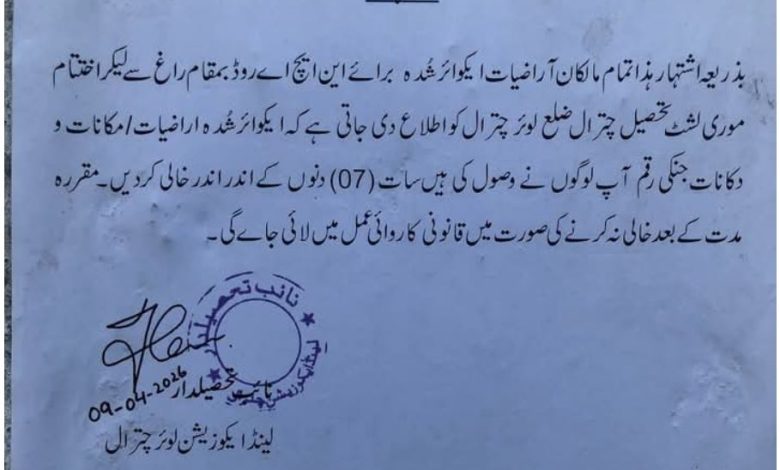 بذریعہ اشتہار ہذا تمام مالکان آراضیات ایکوائر شُدہ برائے این ایچ اے روڈ بمقام راغ سے لیکر اختتام
موری لشٹ تحصیل چترال ضلع لوئر چترال کو اطلاع دی جاتی ہے کہ ایکوائر شُدہ اراضیات/مکانات و
دکانات جنکی رقم آپ لوگوں نے وصول کی ہیں سات (07) دنوں کے اندر اندر خالی کر دیں۔ مقررہ
مدت کے بعد خالی نہ کرنے کی صورت میں قانونی کاروائی عمل میں لائی جاے گی۔
نائب تحصیلدار
لینڈ ایکوزیشن
نائب تحصیلدار
09-04-2026
لینڈ ایکوزیشن لوئر چترال